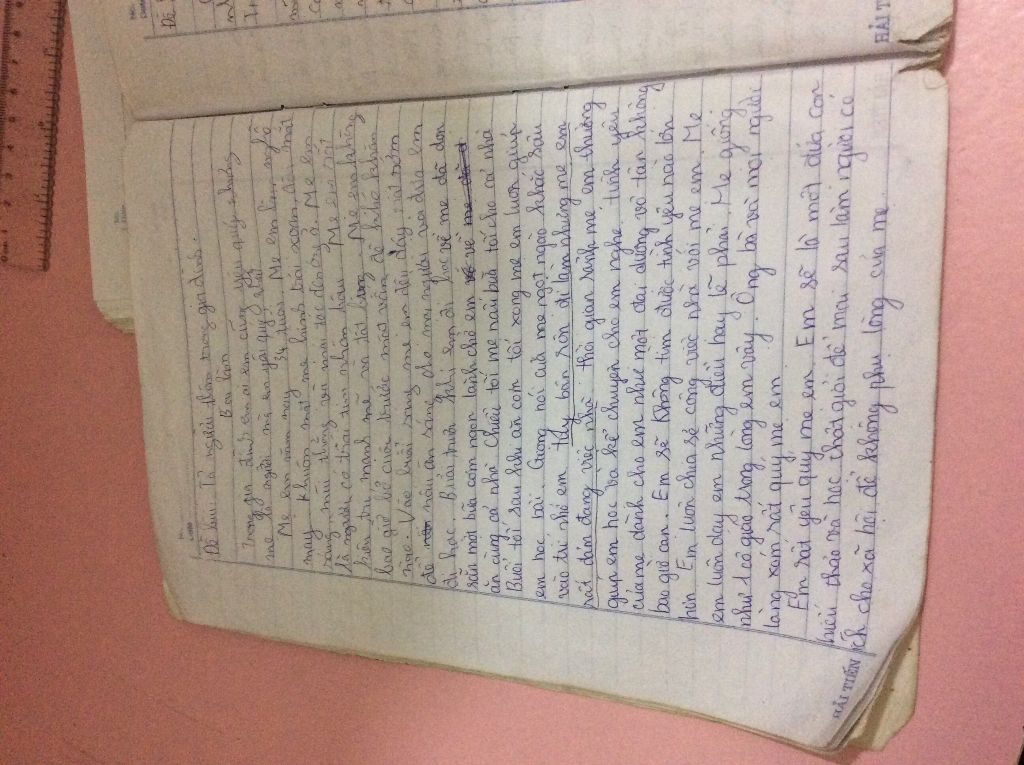 Đề bài: Tả người thân trong gia đình.
Bài làm
Trong gia đình em ai em cũng yêu quý nhưng
mẹ là người mà em yêu quý nhất
Mẹ em năm nay 34 tuổi. Mẹ em làm nghề
may khuôn mặt mẹ hình trái xoan, đôi mắt
sáng, mũi thẳng và mái tóc đen óng ả. Mẹ em
là người có trái tim nhân hậu. Mẹ em rất
kiên trì, mạnh mẽ và tốt bụng. Mẹ em không
bao giờ bỏ cuộc trước mọi vấn đề khó khăn
nào. Vào buổi sáng mẹ em đều dậy rất sớm
để nấu ăn sáng cho mọi người và đưa em
đi học. Buổi trưa khi em đi học về mẹ đã dọn
sẵn một bữa cơm ngon lành chờ em về
ăn cùng cả nhà. Chiều tối mẹ nấu bữa tối cho cả nhà
Buổi tối sau khi ăn cơm tối xong mẹ em luôn giúp
em học bài. Giọng nói của mẹ ngọt ngào khắc sâu
vào trí nhớ em. Tuy bán sớn đi làm nhưng mẹ em
rất đảm đang việc nhà. Thời gian rảnh mẹ em thường
giúp em học và kể chuyện cho em nghe. Tình yêu
của mẹ dành cho em như một đại dương vô tận không
bao giờ cạn. Em sẽ không tìm được tình yêu nào lớn
hơn. Em luôn chia sẻ công việc nhà với mẹ em. Mẹ
em luôn dạy em những điều hay lẽ phải. Mẹ giống
như 1 cô giáo trong lòng em vậy. Ông bà và mọi người
làng xóm rất quý mẹ em
Em rất yêu quý mẹ em. Em sẽ là một đứa con
hiếu thảo và học thật giỏi để mai sau làm người có
ích cho xã hội để không phụ lòng của mẹ.
HẢI TIẾN
HẢI TIẾN